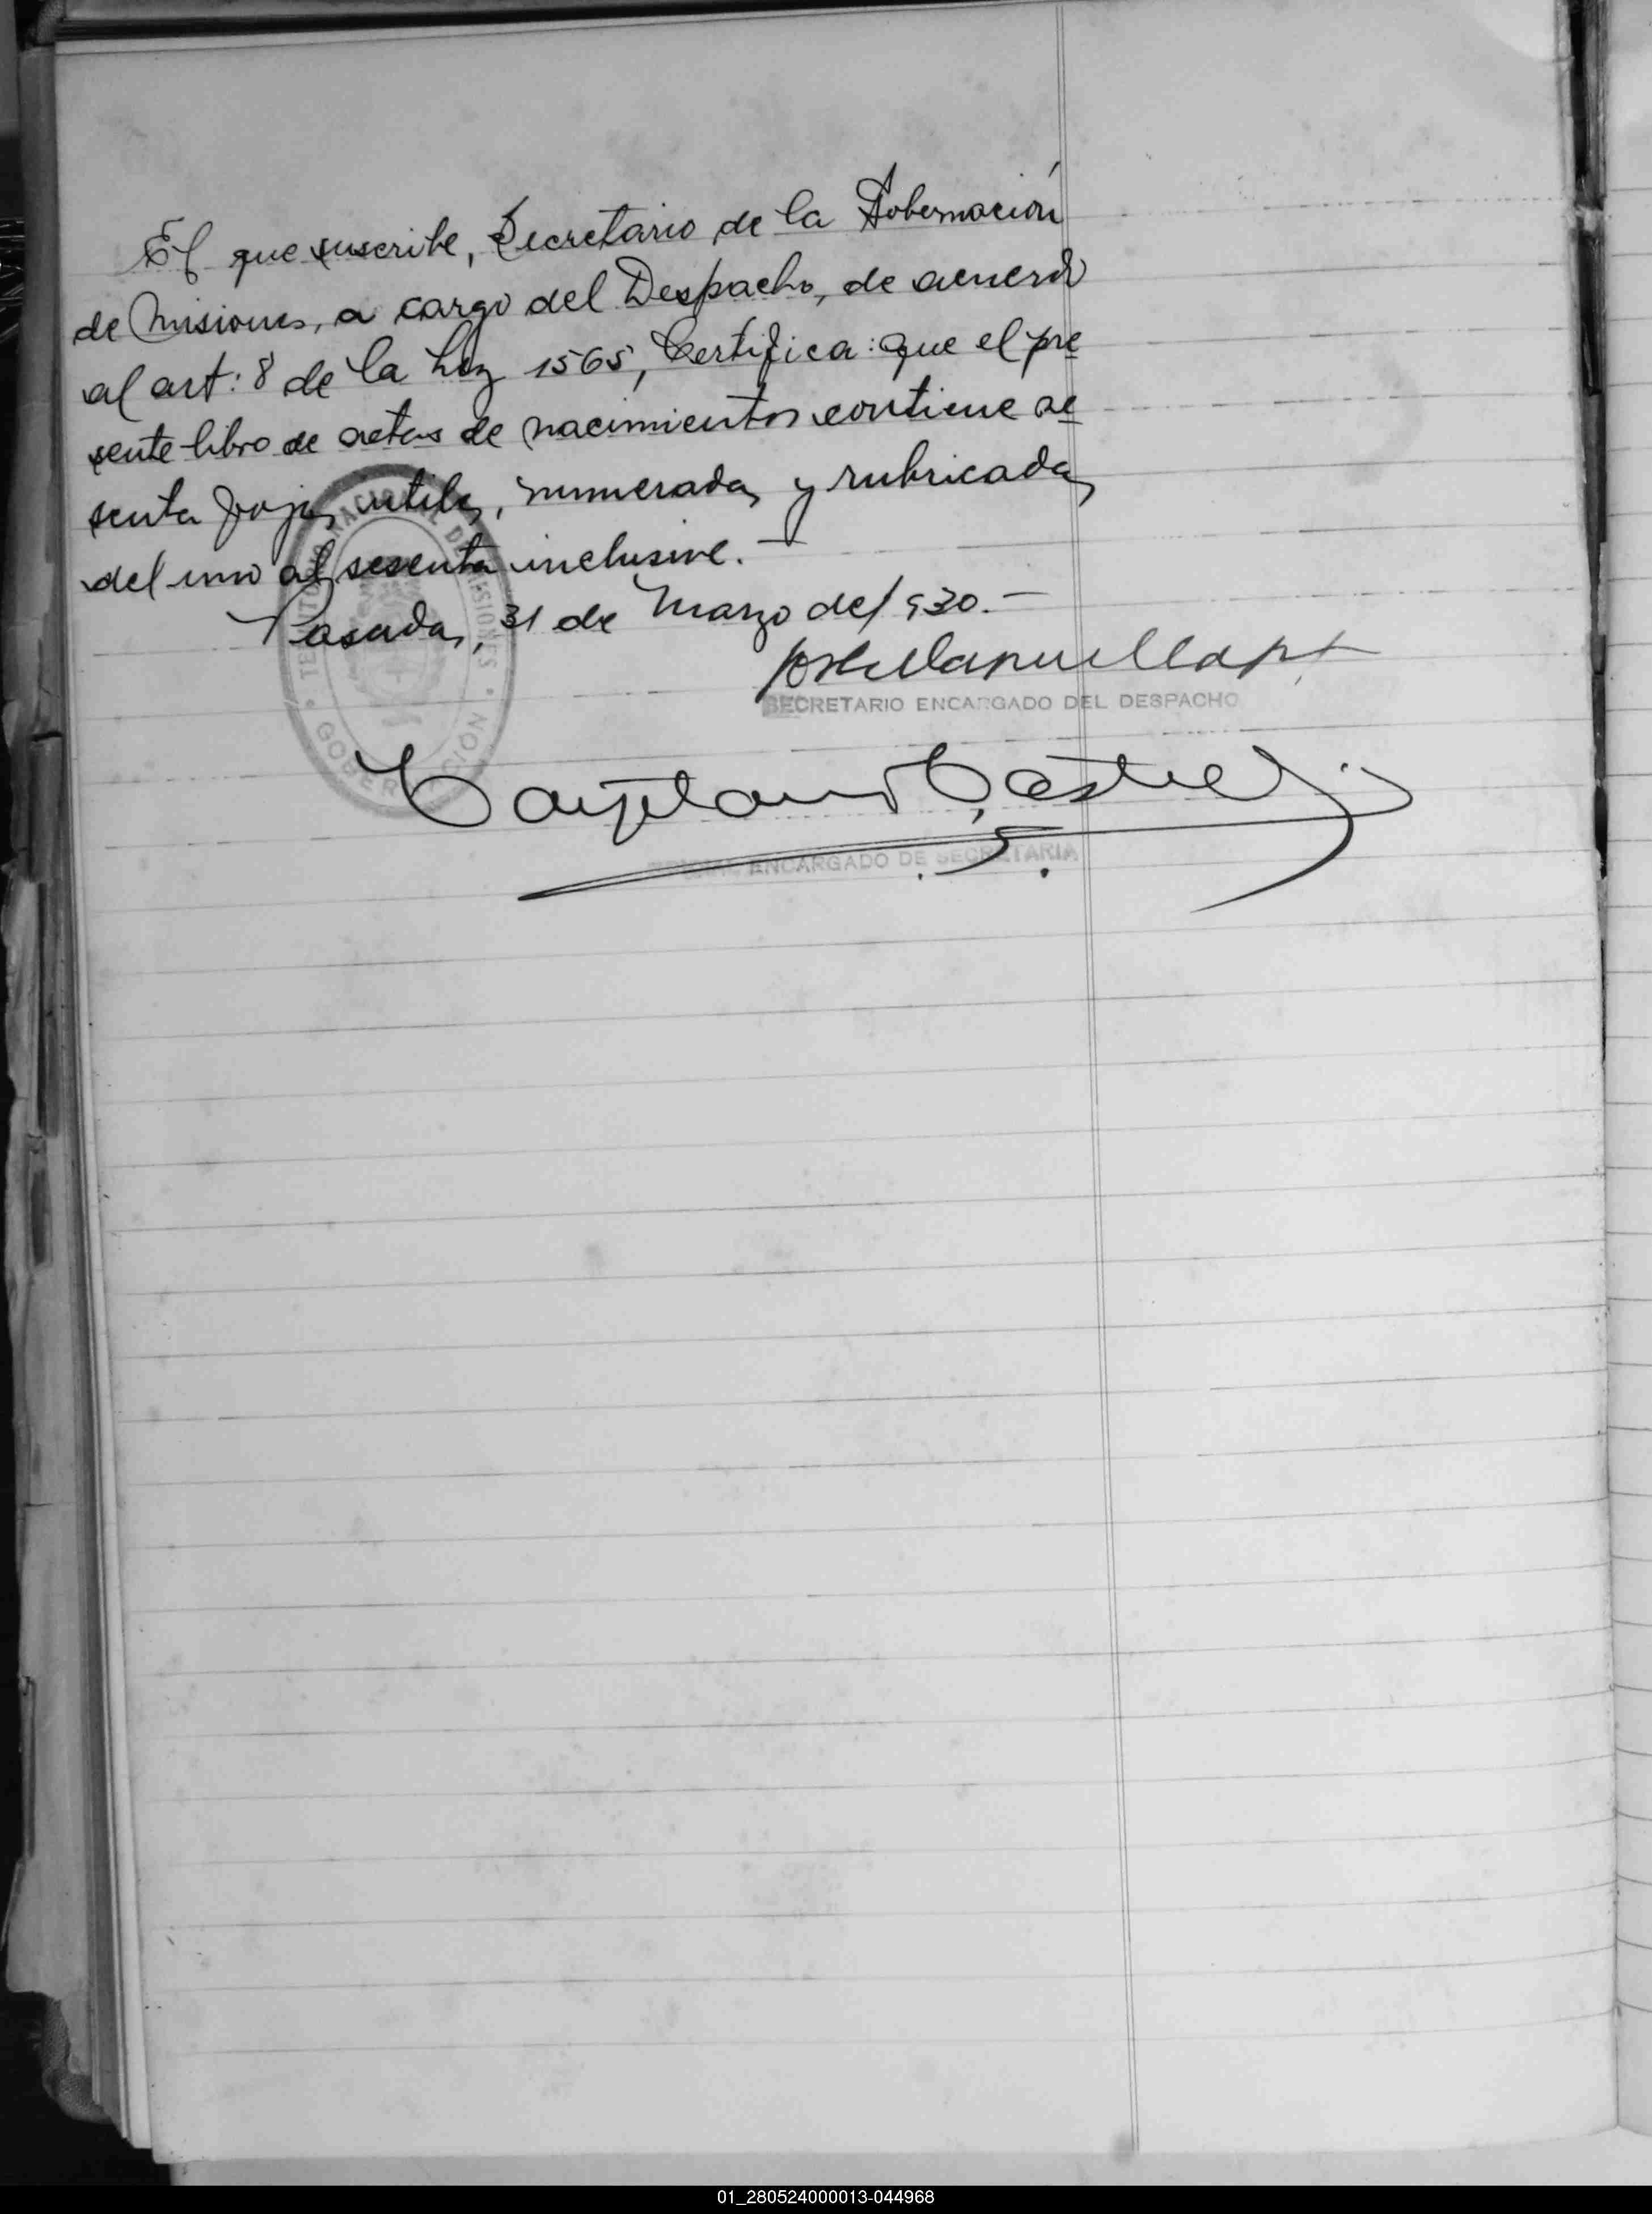 El que suscribe, Secretario de la Gobernación
de Misiones, a cargo del Despacho, de acuerdo
al art: 8 de la Ley 1565, Certifica: que el pre
sente libro de actas de nacimientos contiene se
senta fojas utiles, numeradas y rubricadas
del uno al sesenta inclusive.-
Posadas, 31 de Marzo del 930.-
SECRETARIO ENCARGADO DEL DESPACHO
Cayetano Castelli
ENCARGADO DE SECRETARIA
TERRITORIO NACIONAL DE MISIONES
GOBERNACION
01_280524000013-044968